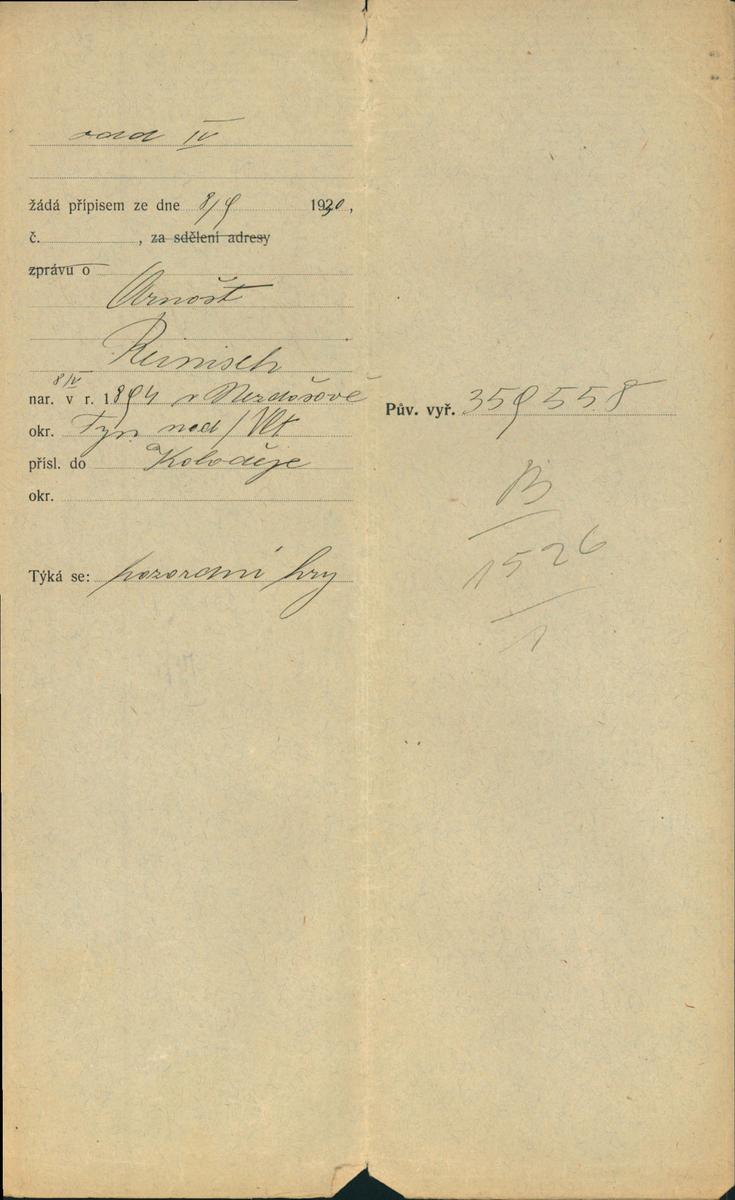 odd IV
žádá přípisem ze dne 8/9 1930,
č. , za sdělení adresy
zprávu o
Arnošt
Reinisch
8/IV
nar. v r. 1894 v Nezdašově
okr. Týn nad/Vlt
přísl. do Koloděje
okr.
Týká se: hry
Pův. vyř. 359558
B
1526
1